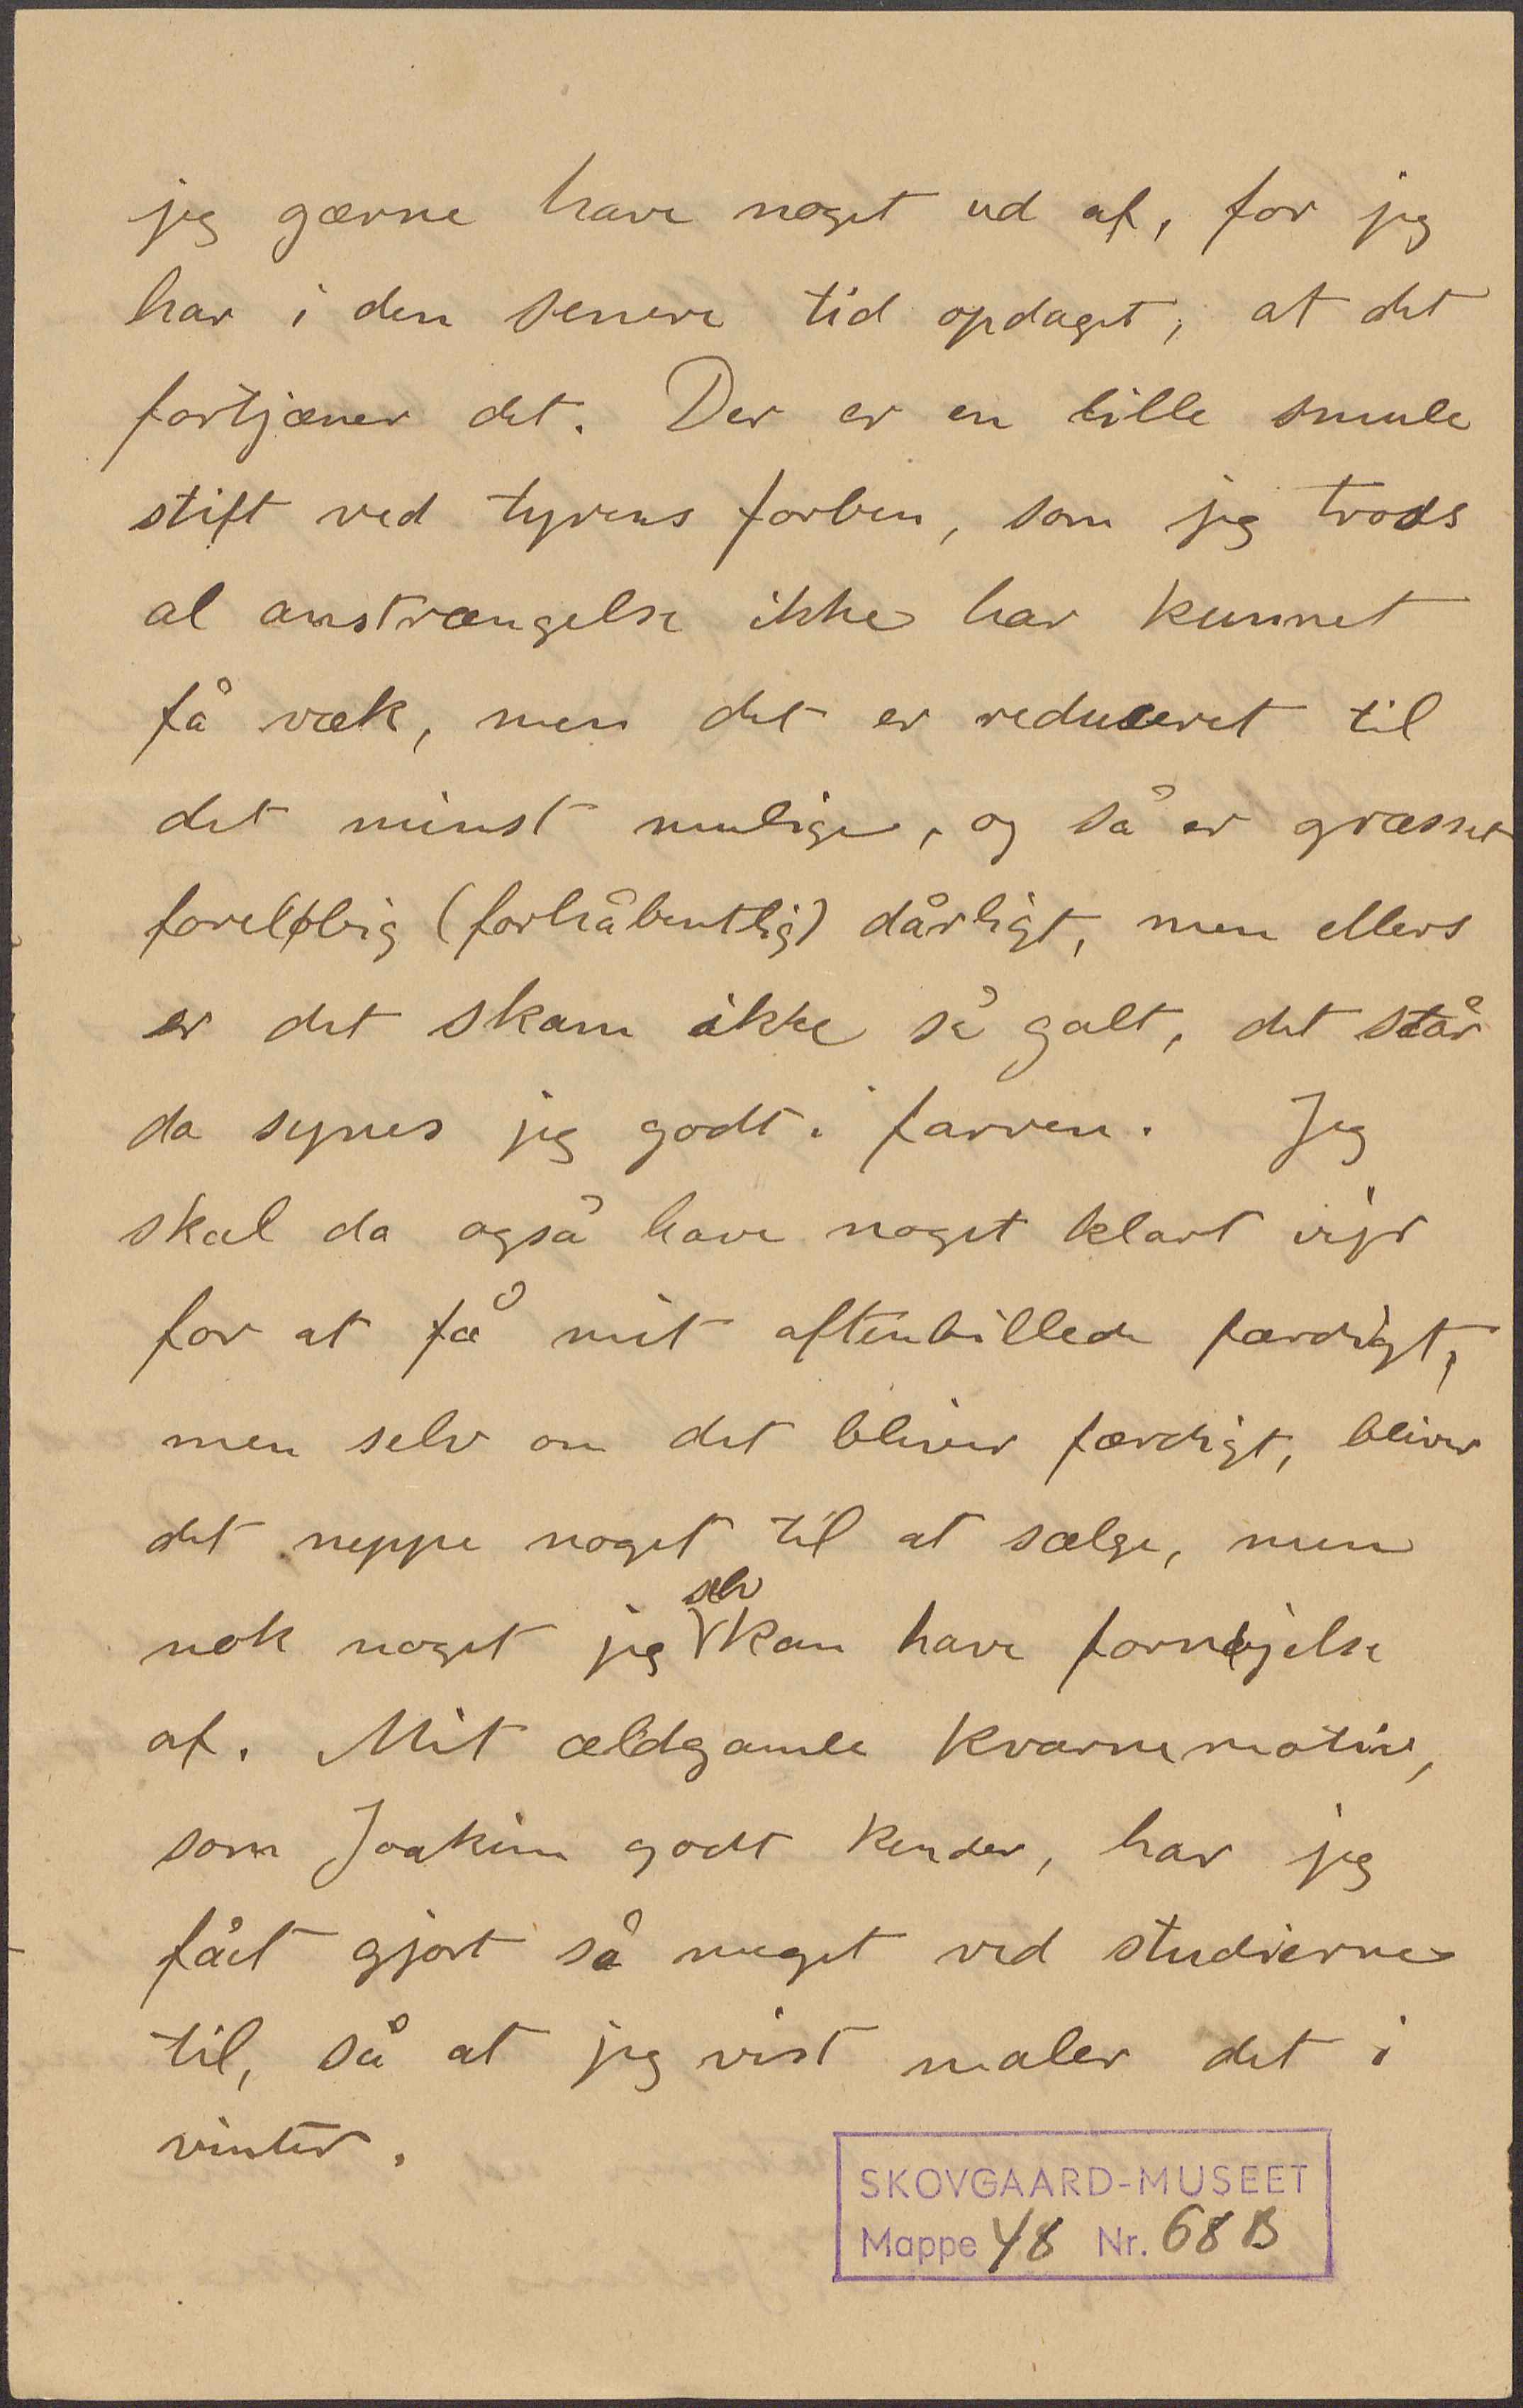 jeg gærne have noget ud af, for jeg
har i den senere tid opdaget, at det
fortjæner det. Der er en lille smule
stift ved tyrens forben, som jeg trods
al anstrængelse ikke har kunnet
få væk, men det er reduceret til
det minst mulige, og så er græsset
foreløbig (forhåbentlig) dårligt, men ellers
er det skam ikke så galt, det står
da synes jeg godt i farven. Jeg
skal da også have noget klart vejr
for at få mit aftenbillede færdigt,
men selv om det bliver færdigt, bliver
det neppe noget til at sælge, men
nok noget jeg selv kan have fornøjelse
af. Mit ældgamle kvarnemotiv,
som Joakim godt kender, har jeg
fået gjort så meget ved studierne
til, så at jeg vist maler det i
vinter.
SKOVGAARD-MUSEET
Mappe 48 Nr. 68 B